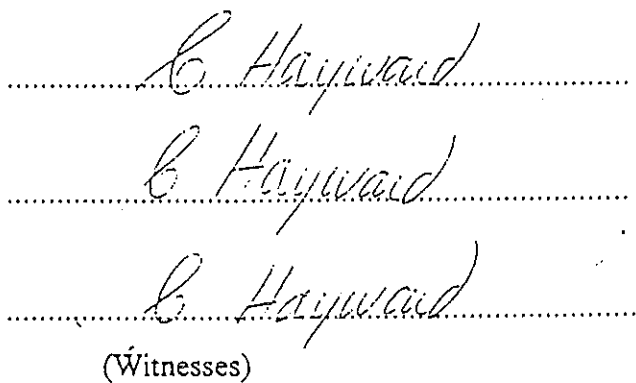 C Hayward
C Hayward
C Hayward
(Witnesses)